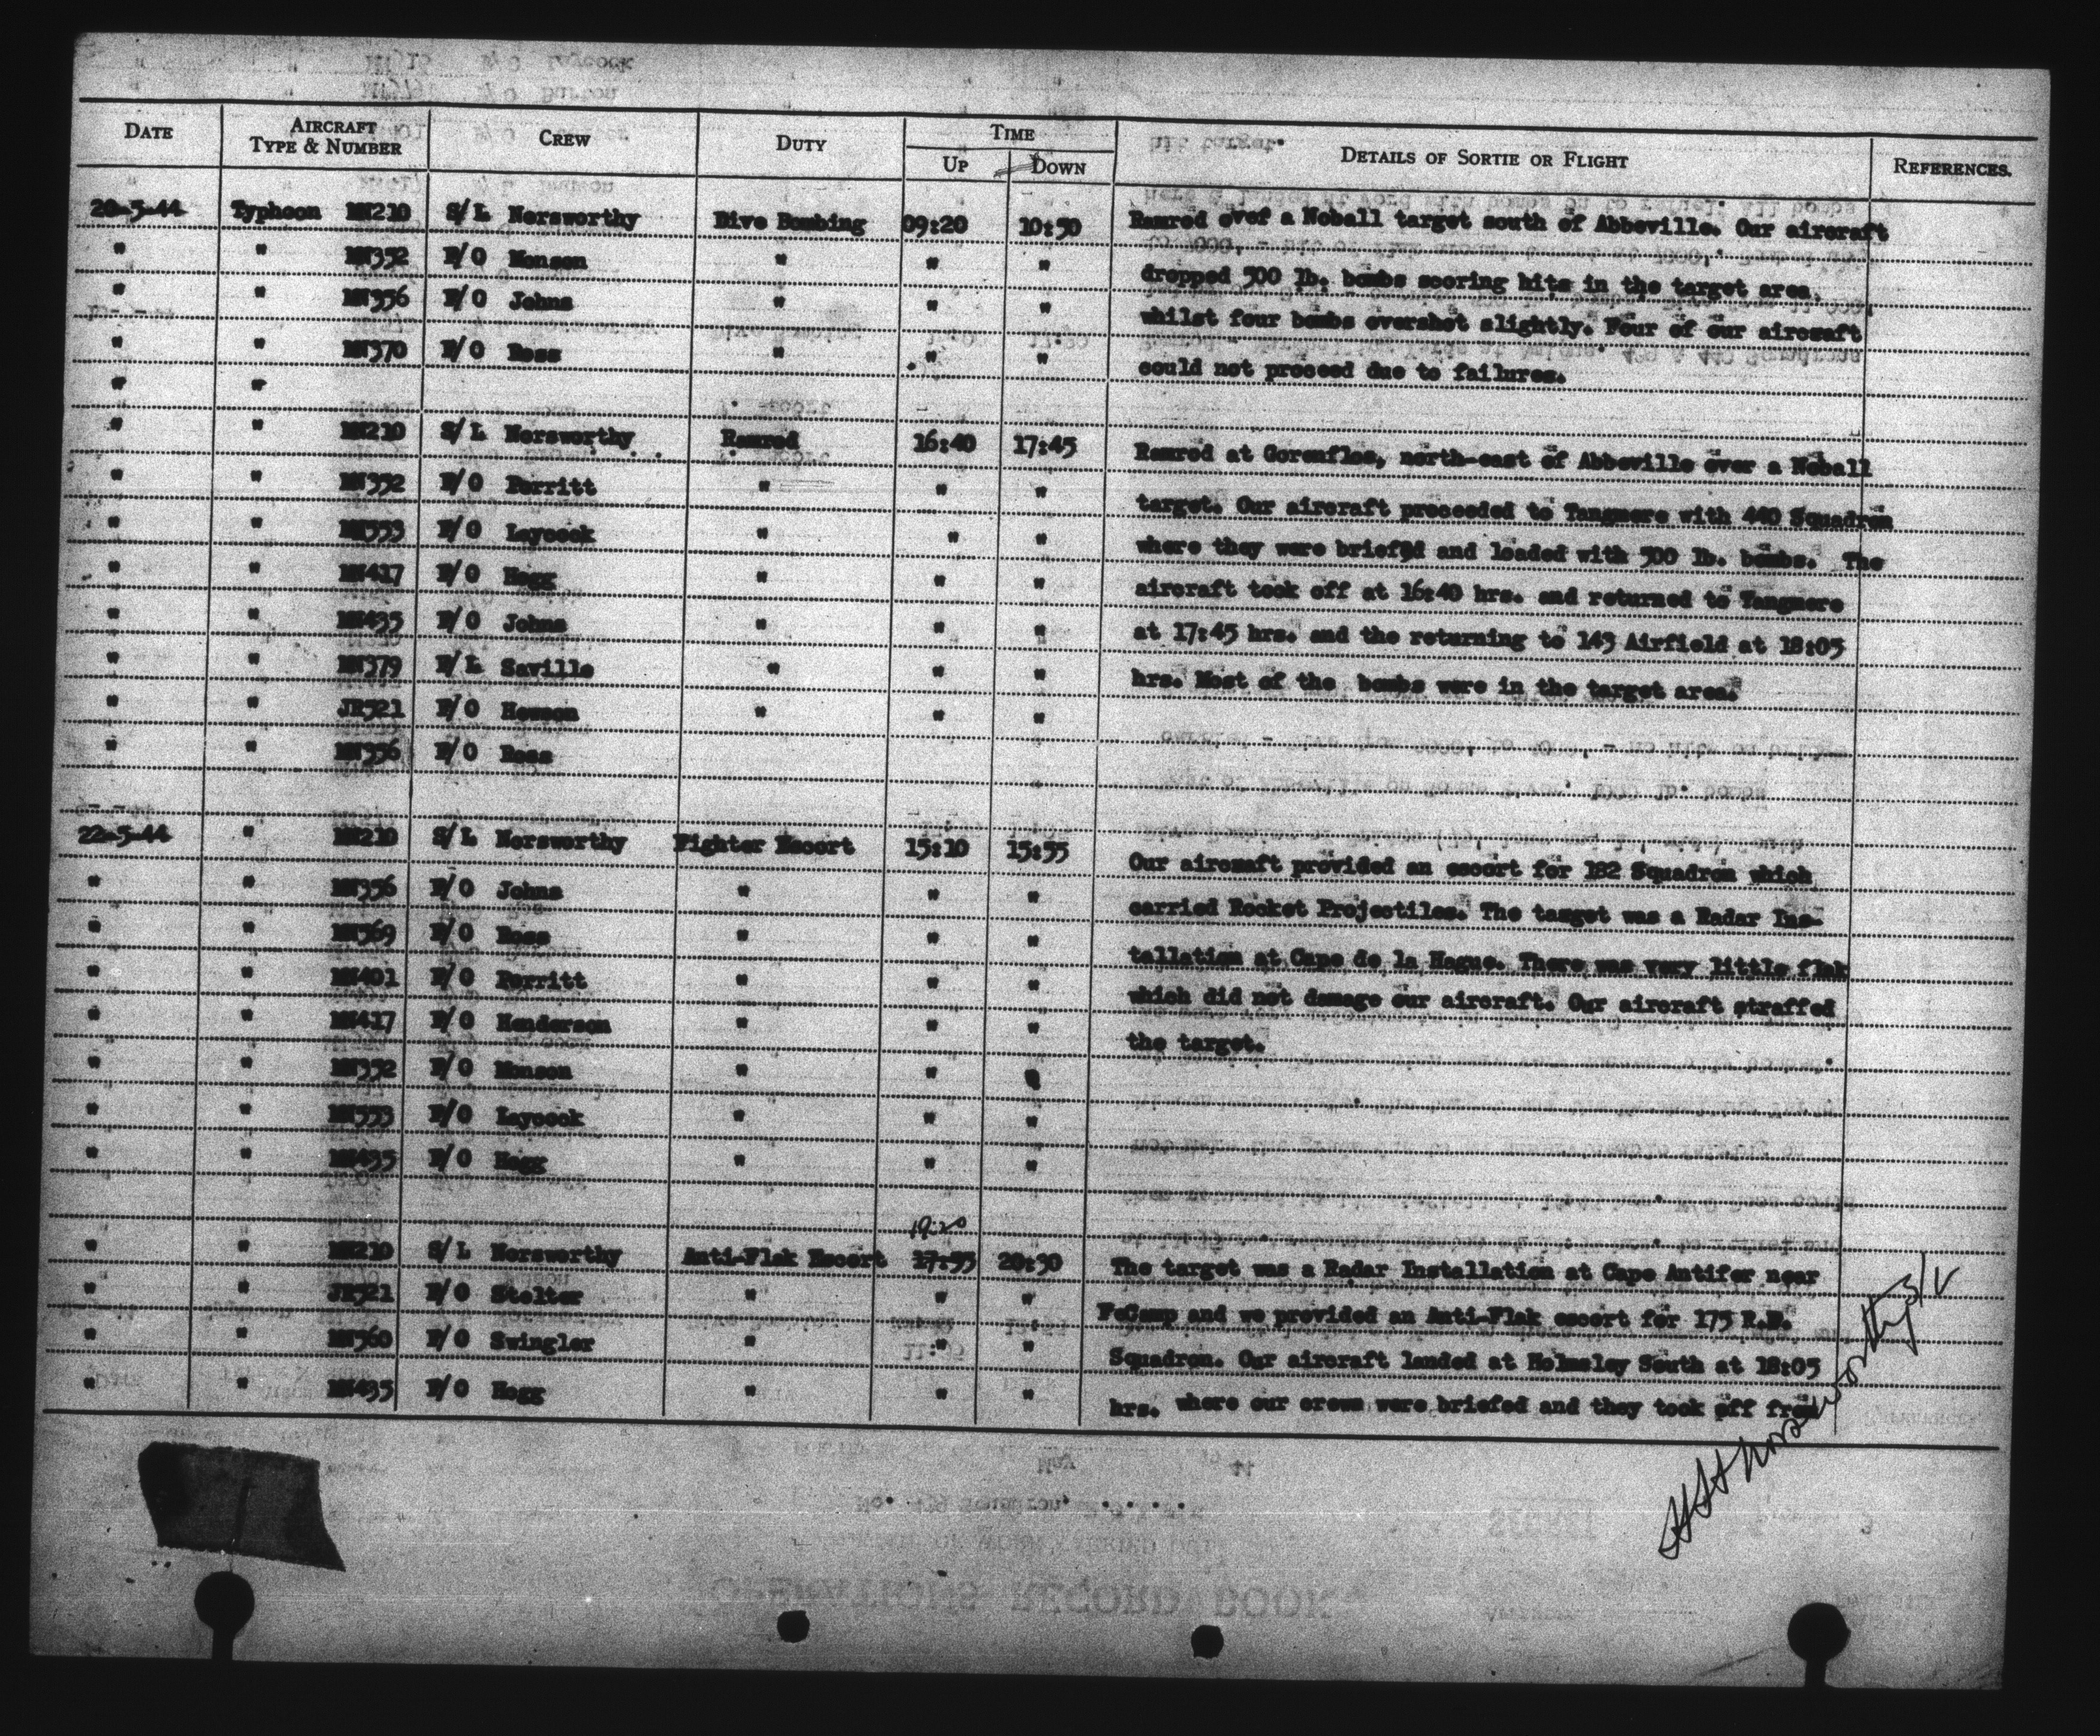 DATE AIRCRAFT TYPE & NUMBER CREW DUTY TIME UP DOWN DETAILS OF SORTIE OR FLIGHT REFERENCES.
20-5-44 Typhoon MN210 S/L Norsworthy Dive Bombing 09:20 10:50 Ramrod over a Noball target south of Abbeville. Our aircraft
" " MN352 F/O Monson " " " dropped 500 lb. bombs scoring hits in the target area,
" " MN356 F/O Johns " " " whilst four bombs overshot slightly. Four of our aircraft
" " MN370 F/O Ross " " " could not proceed due to failures.
" "
" " MN210 S/L Norsworthy Ramrod 16:40 17:45 Ramrod at Gorenflos, north-east of Abbeville over a Noball
" " MN352 F/O Porritt " " " target. Our aircraft proceeded to Tangmere with 440 Squadron
" " MN553 F/O Laycock " " " where they were briefed and loaded with 500 lb. bombs. The
" " MN417 F/O Hogg " " " aircraft took off at 16:40 hrs. and returned to Tangmere
" " MN435 F/O Johns " " " at 17:45 hrs. and the returning to 143 Airfield at 18:05
" " MN379 F/L Saville " " " hrs. Most of the bombs were in the target area.
" " JR521 F/O Hewson " " "
" " MN356 F/O Ross
22-5-44 " MN210 S/L Norsworthy Fighter Escort 15:10 15:55 Our aircraft provided an escort for 182 Squadron which
" " MN356 F/O Johns " " " carried Rocket Projectiles. The target was a Radar Ins-
" " MN369 F/O Ross " " " tallation at Cape de la Hague. There was very little flak
" " MN401 F/O Porritt " " " which did not damage our aircraft. Our aircraft straffed
" " MN417 F/O Henderson " " " the target.
" " MN352 F/O Monson " " "
" " MN553 F/O Laycock " " "
" " MN435 F/O Hogg " " "
19:20
" " MN210 S/L Norsworthy Anti-Flak Escort 17:55 20:30 The target was a Radar Installation at Cape Antifer near
" " JR521 F/O Stelter " " " FeCamp and we provided an Anti-Flak escort for 175 R.P.
" " MN360 F/O Swingler " " " Squadron. Our aircraft landed at Holmsley South at 18:05
" " MN435 F/O Hogg " " " hrs. where our crews were briefed and they took off from
HH Norsworthy S/L